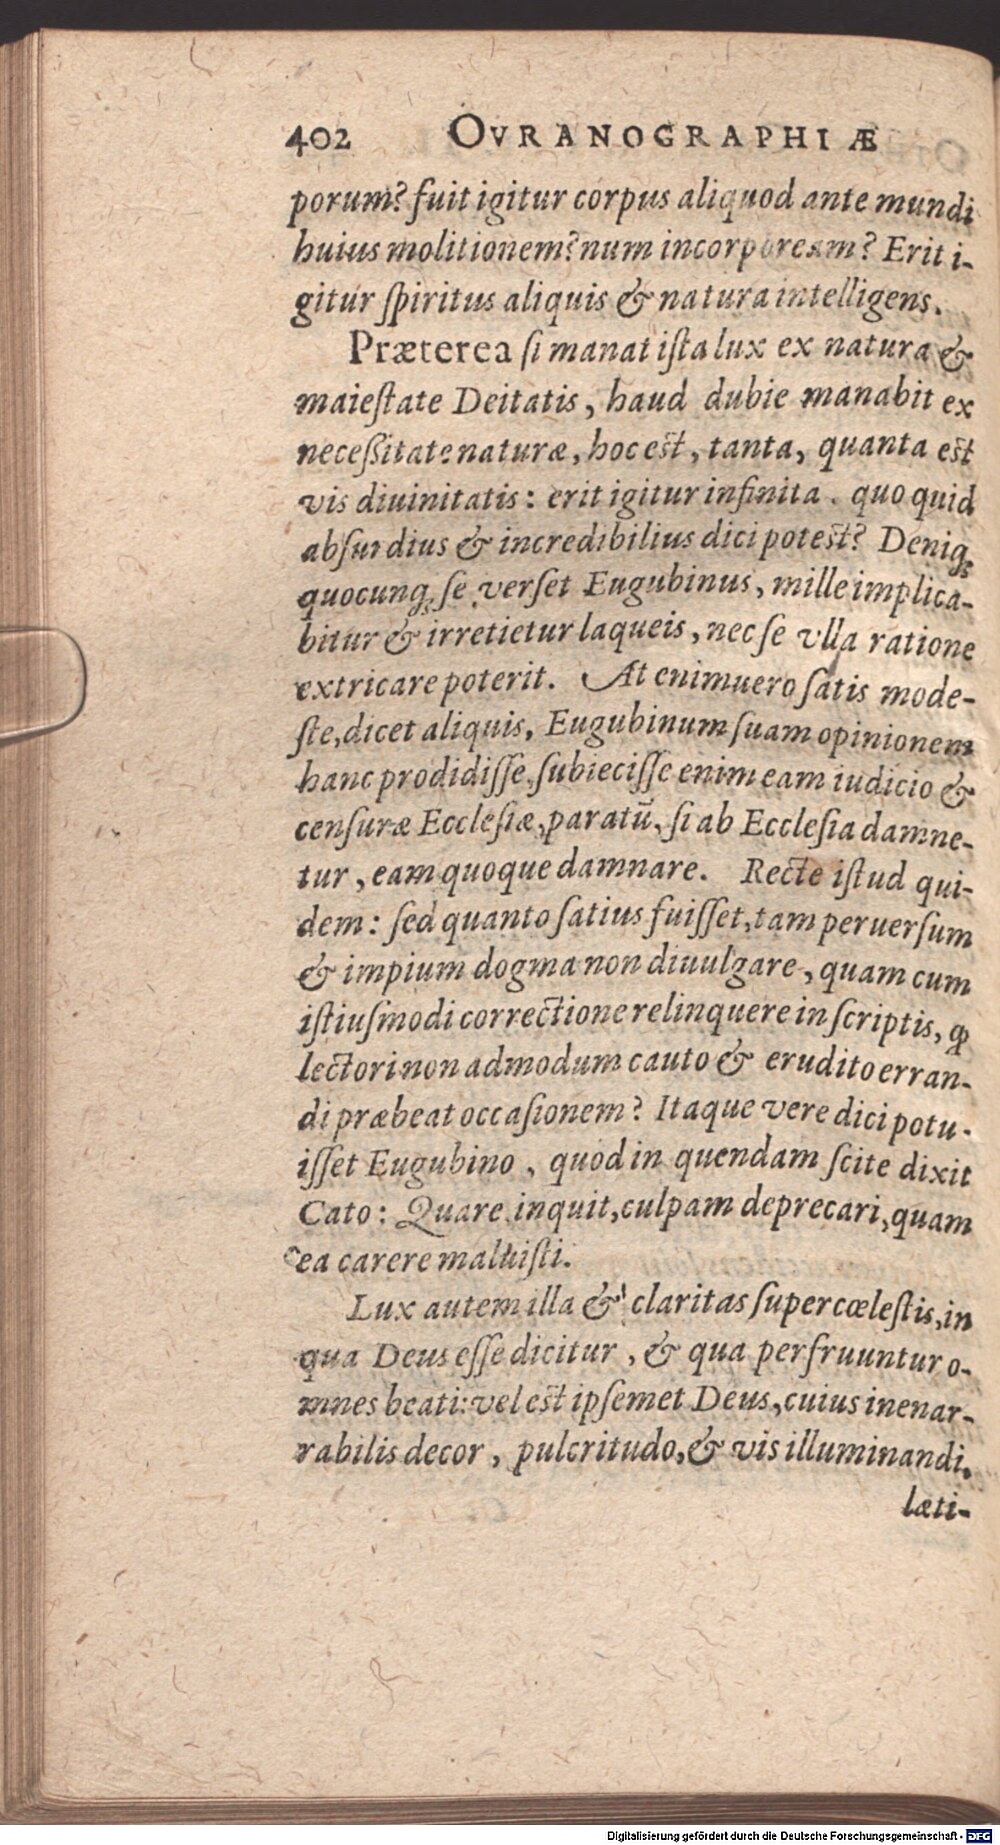 402 OVRANOGRAPHIÆ
porum? fuit igitur corpus aliquod ante mundi
huius molitionem? num incorpoream? Erit i-
gitur ſpiritus aliquis & natura intelligens.
Præterea ſi manat iſta lux ex natura &
maieſtate Deitatis, haud dubie manabit ex
neceßitate naturæ, hoc est, tanta, quanta est
vis diuinitatis: erit igitur infinita. quo quid
abſurdius & incredibilius dici potest? Deniq;
quocunq; ſe verſet Eugubinus, mille implica-
bitur & irretietur laqueis, nec ſe vlla ratione
extricare poterit. At enimuero ſatis mode-
ſte, dicet aliquis, Eugubinum ſuam opinionem
hanc prodidiſſe, ſubieciſſe enim eam iudicio &
cenſuræ Eccleſiæ, paratū, ſi ab Eccleſia damne-
tur, eam quoque damnare. Recte iſtud qui-
dem: ſed quanto ſatius fuiſſet, tam peruerſum
& impium dogma non diuulgare, quam cum
iſtiuſmodi correctione relinquere in ſcriptis, ꝙ
lectori non admodum cauto & erudito erran-
di præbeat occaſionem? Itaque vere dici potu-
iſſet Eugubino, quod in quendam ſcite dixit
Cato: Quare, inquit, culpam deprecari, quam
ea carere maluiſti.
Lux autem illa & claritas ſupercœleſtis, in
qua Deus eſſe dicitur, & qua perfruuntur o-
mnes beati: vel est ipſemet Deus, cuius inenar-
rabilis decor, pulcritudo, & vis illuminandi,
læti-
Digitalisierung gefördert durch die Deutsche Forschungsgemeinschaft - DFG